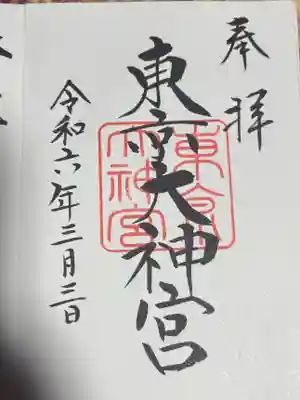 奉拝
東京大神宮
令和六年三月三日
東京大神宮